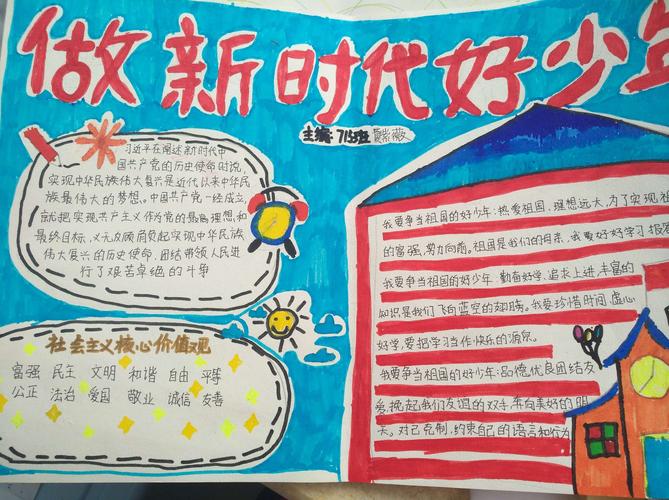 做新时代好少年
主编:715班 夏紫薇
习近平在阐述新时代中
国共产党的历史使命时说,
实现中华民族伟大复兴是近代以来中华民
族最伟大的梦想。中国共产党一经成立,
就把实现共产主义作为党的最高理想和
最终目标,义无反顾肩负起实现中华民族
伟大复兴的历史使命,团结带领人民进
行了艰苦卓绝的斗争
社会主义核心价值观
富强 民主 文明 和谐 自由 平等
公正 法治 爱国 敬业 诚信 友善
我要争当祖国的好少年:热爱祖国,理想远大,为了实现祖
的富强,努力向前。祖国是我们的母亲,我要好好学习报答
我要争当祖国的好少年:勤奋好学、追求上进,丰富的
知识是我们飞向蓝空的翅膀。我要珍惜时间,虚心
好学,要把学习当作快乐的源泉。
我要争当祖国的好少年:品德优良团结友
爱,挽起我们友谊的双手,奔向美好的明
天。对己克制,约束自己的语言和行为